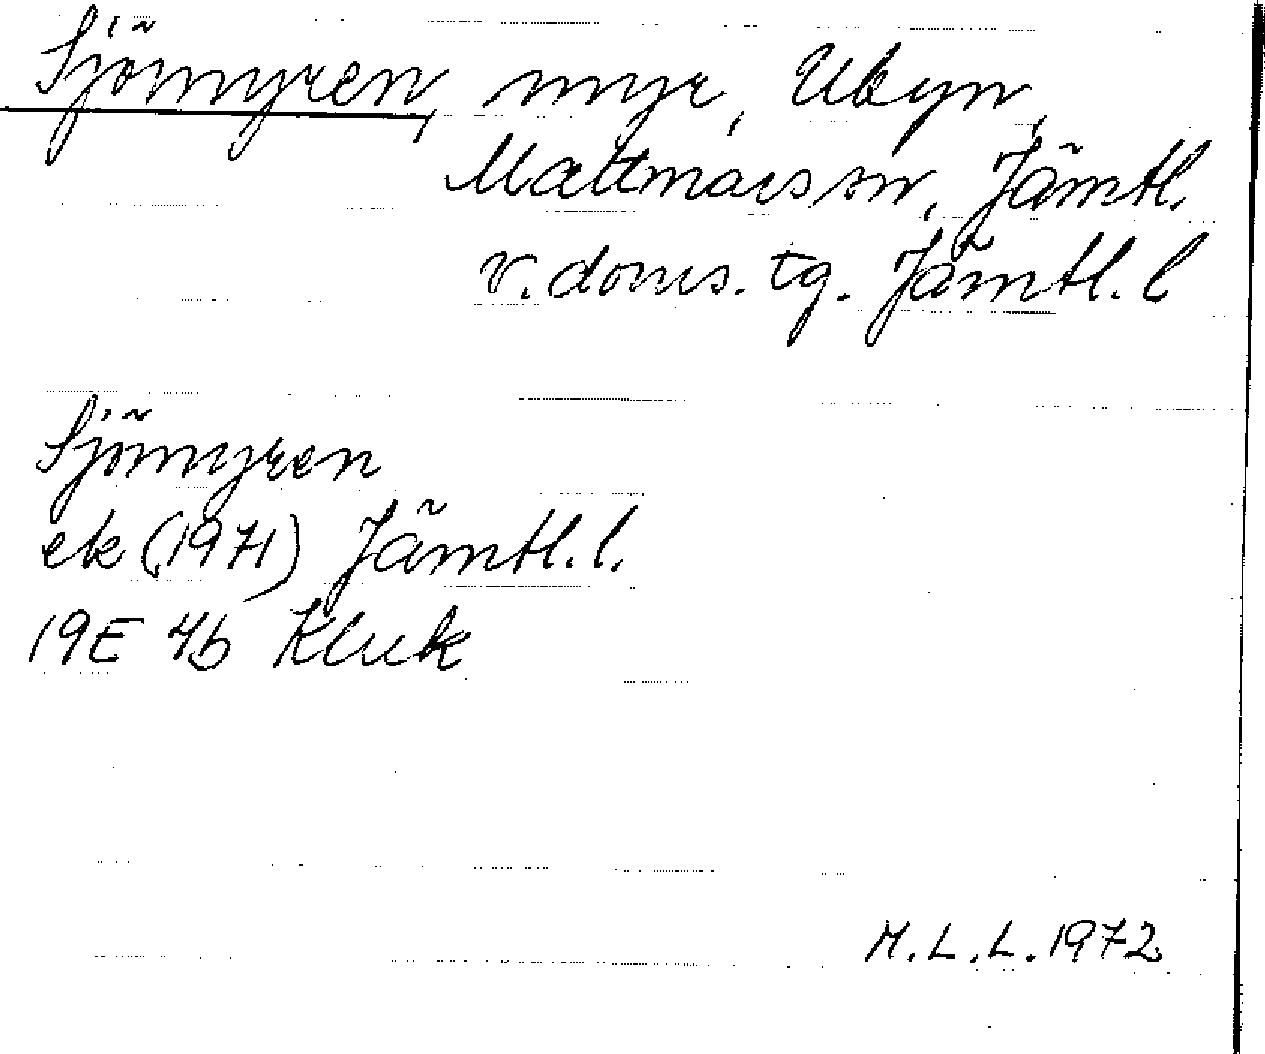 Sjömyren, myr, Ubyn,
Mattmars sn, Jämtl.
v. doms. tg. Jämtl. l
Sjömyren
ek (1971) Jämtl. l.
19E 4b Kluk
M.L.L. 1972